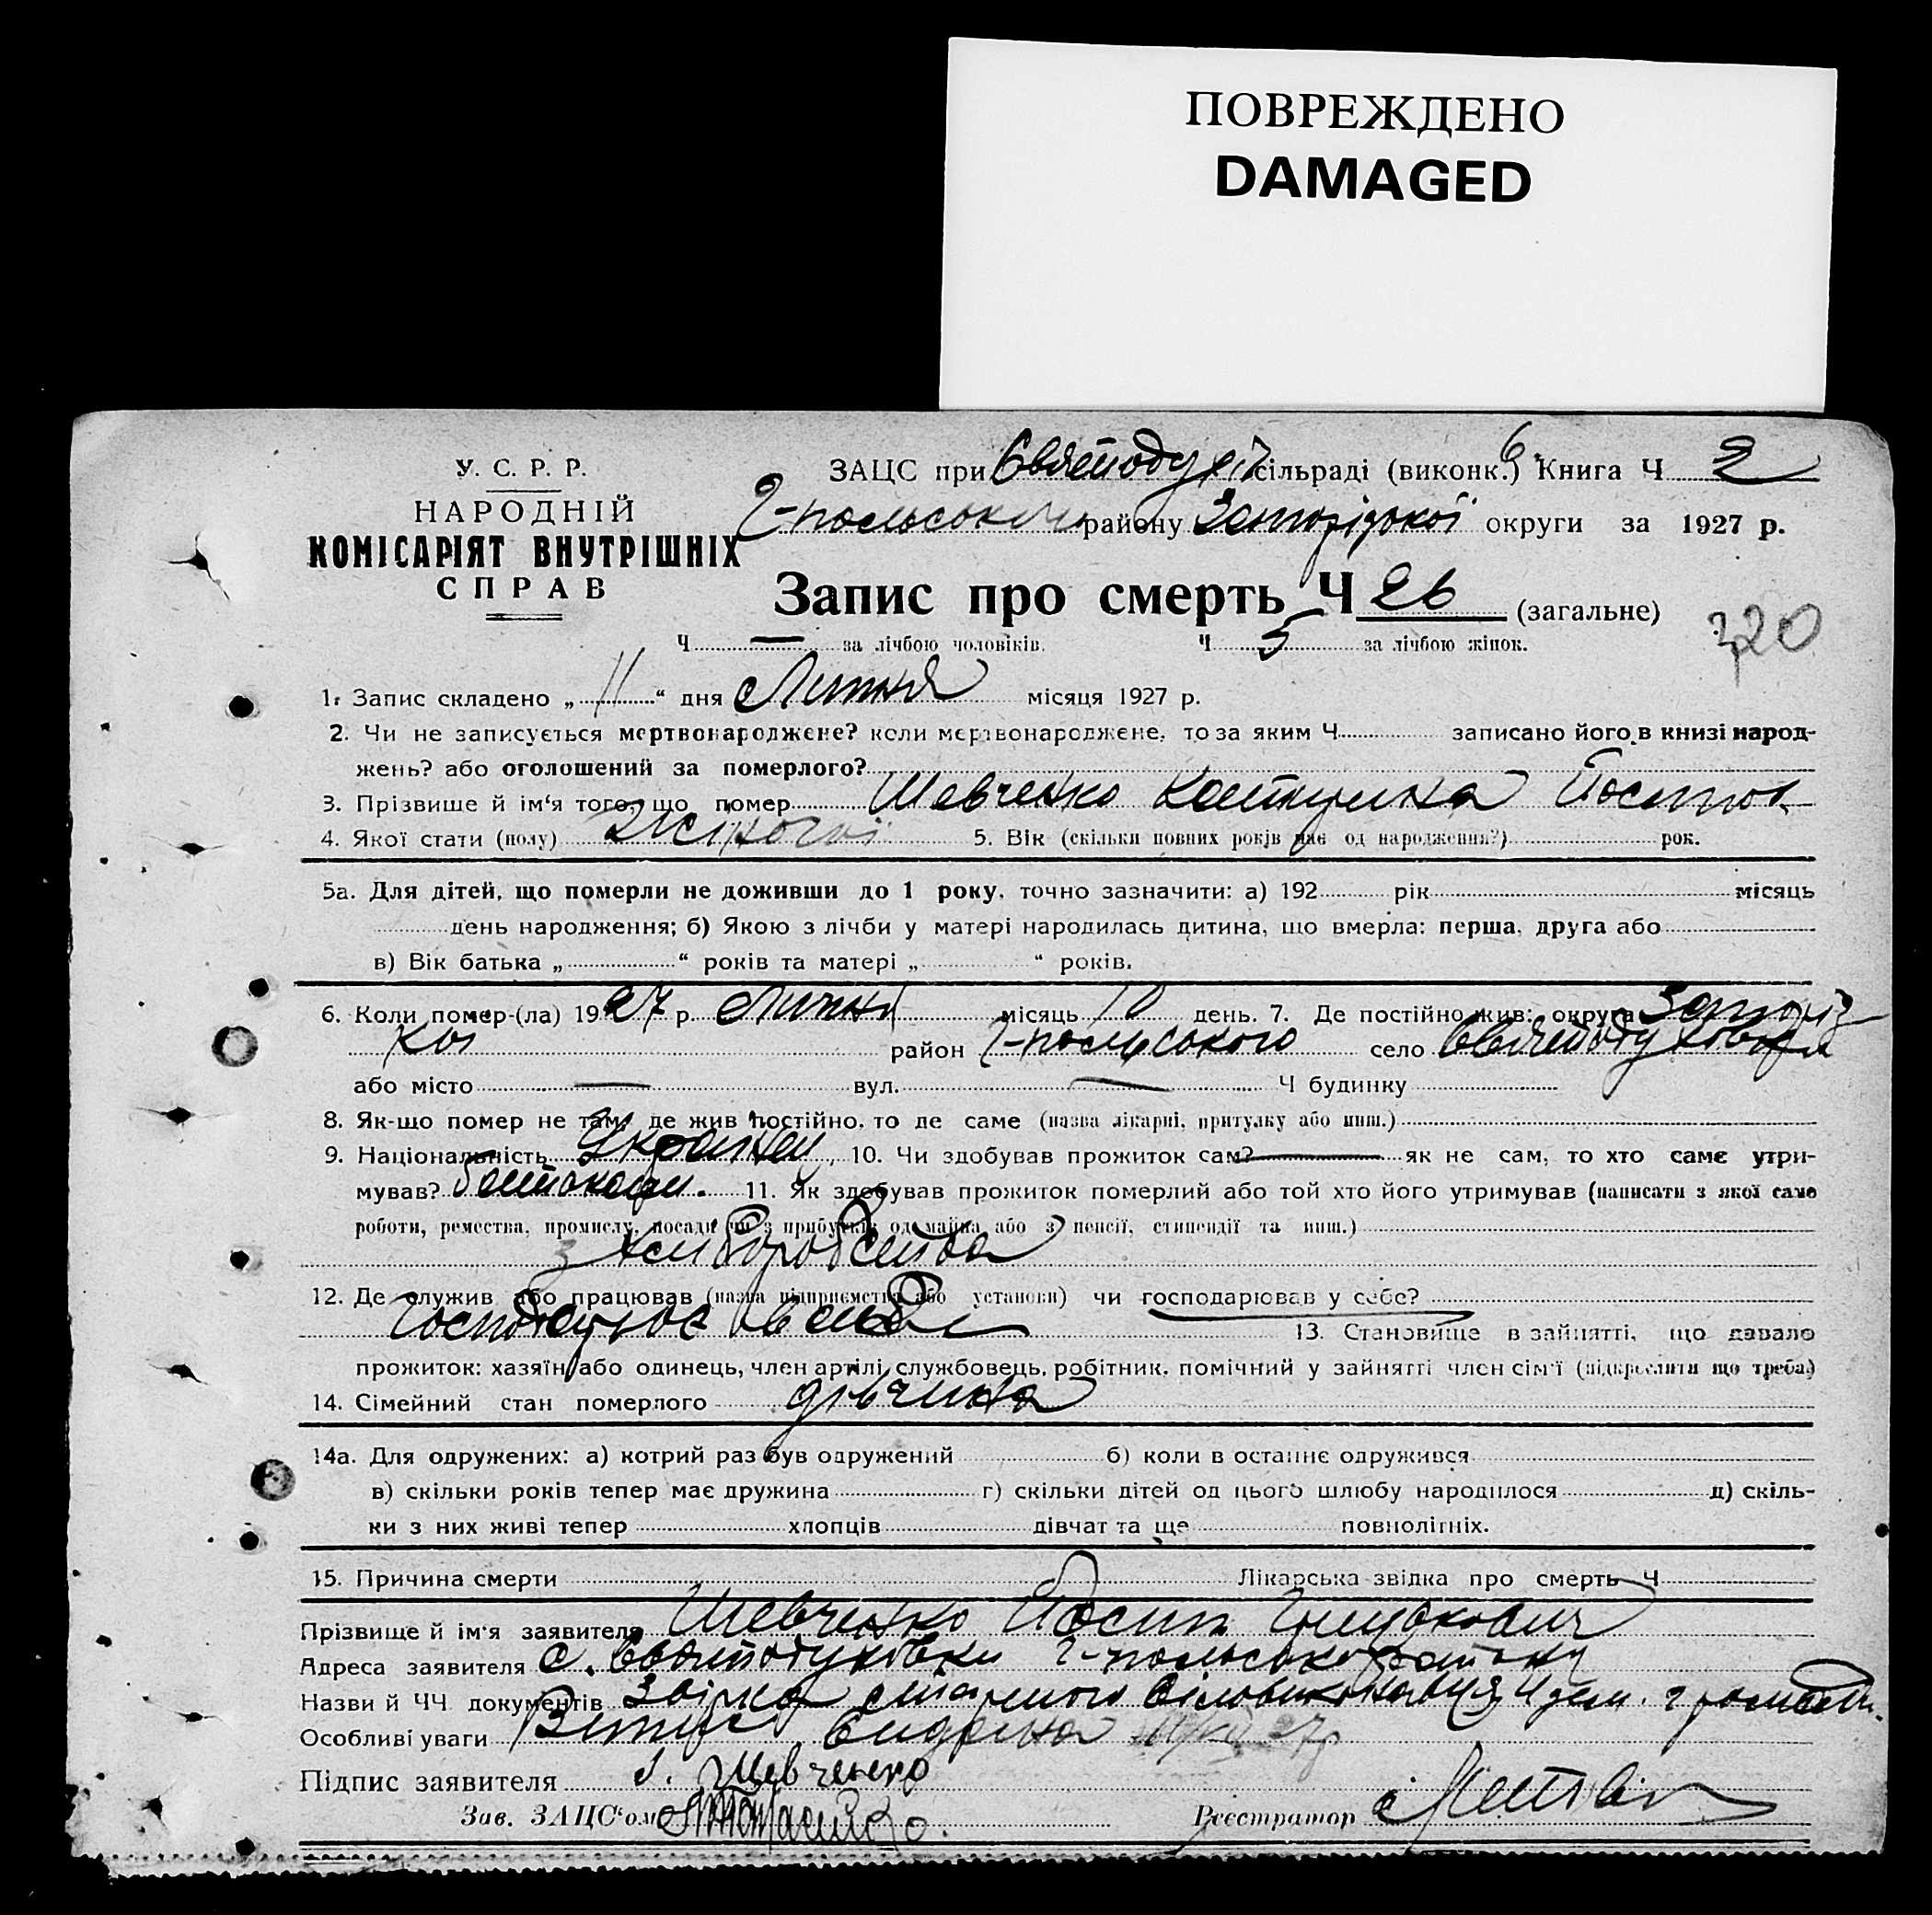 ПОВРЕЖДЕНО
DAMAGED
У. С. Р. Р.
НАРОДНІЙ
КОМІСАРІЯТ ВНУТРІШНІХ
СПРАВ
ЗАЦС при Святодух сільраді (виконк.) Книга Ч 2
Г-польського району Запорізької округи за 1927 р.
Запис про смерть Ч 26 (загальне)
320
Ч — за лічбою чоловіків. Ч 5 за лічбою жінок.
1. Запис складено „ 11 “ дня Липня місяця 1927 р.
2. Чи не записується мертвонароджене? коли мертвонароджене, то за яким Ч записано його в книзі народ-
жень? або оголошений за померлого?
3. Прізвище й ім‘я того, що помер Шевченко Катерина
4. Якої стати (полу) Жіночої 5. Вік (скільки повних років має од народження?) рок.
5а. Для дітей, що померли не доживши до 1 року, точно зазначити: а) 192 рік місяць
день народження; б) Якою з лічби у матері народилась дитина, що вмерла: перша, друга або
в) Вік батька „ “ років та матері „ “ років.
6. Коли помер-(ла) 1927 р. Липня місяць 10 день. 7. Де постійно жив: округа Запоріз
кої район Г-польського село Святодухівка
або місто — вул. — Ч будинку
8. Як-що помер не там, де жив постійно, то де саме (назва лікарні, притулку або инш.)
9. Національність Україн , 10. Чи здобував прожиток сам? — як не сам, то хто саме утри-
мував? Батько 11. Як здобував прожиток померлий або той хто його утримував (написати з якої саме
роботи, ремества, промислу, посади чи з прибутків од майна або з пенсії, стипендії та инш.)
з хліборобства
12. Де служив або працював (назва підприємства або установи) чи господарював у себе?
Господарює в себе 13. Становище в зайнятті, що давало
прожиток: хазяїн або одинець, член артілі, службовець, робітник, помічний у зайнятті член сім‘ї (підкреслити що треба)
14. Сімейний стан померлого дівчина
14а. Для одружених: а) котрий раз був одружений б) коли в останнє одружився
в) скільки років тепер має дружина г) скільки дітей од цього шлюбу народилося д) скіль-
ки з них живі тепер хлопців дівчат та ще повнолітніх.
15. Причина смерти Лікарська звідка про смерть Ч
Прізвище й ім‘я заявителя Шевченко Йосип
Адреса заявителя с. Святодухівки Г-польськ району
Назви й ЧЧ документів
Особливі уваги
Підпис заявителя Шевченко
Зав. ЗАЦС‘ом
Реєстратор